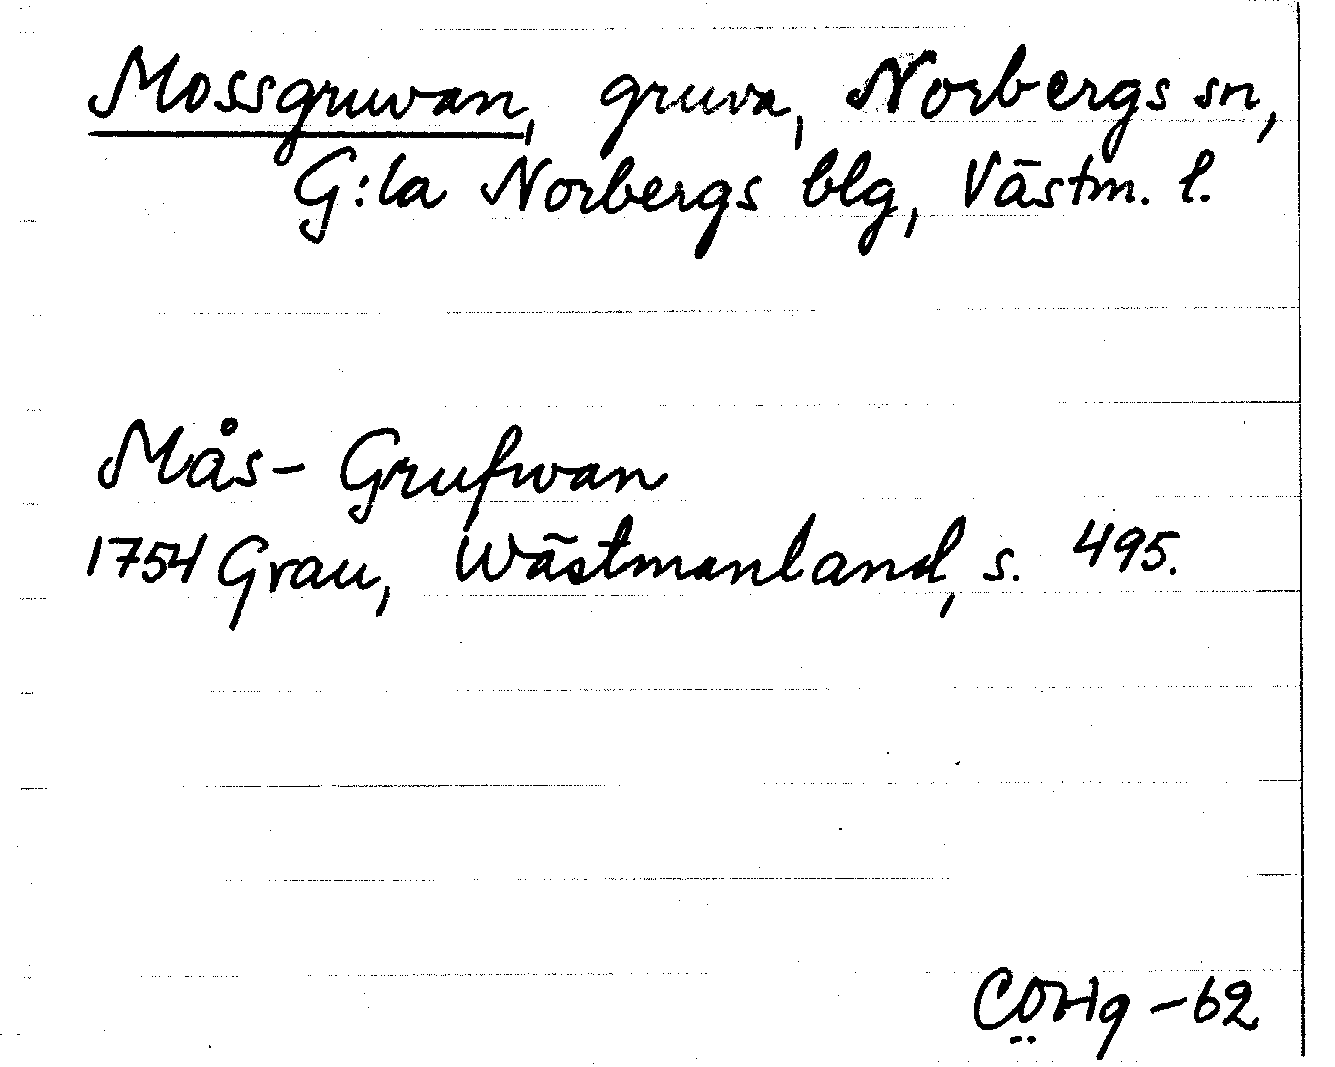 Mossgruvan, gruva, Norbergs sn,
G:la Norbergs blg, Västm. l.
Mås- Grufwan
1754 Grau, Wästmanland, s. 495.
-62